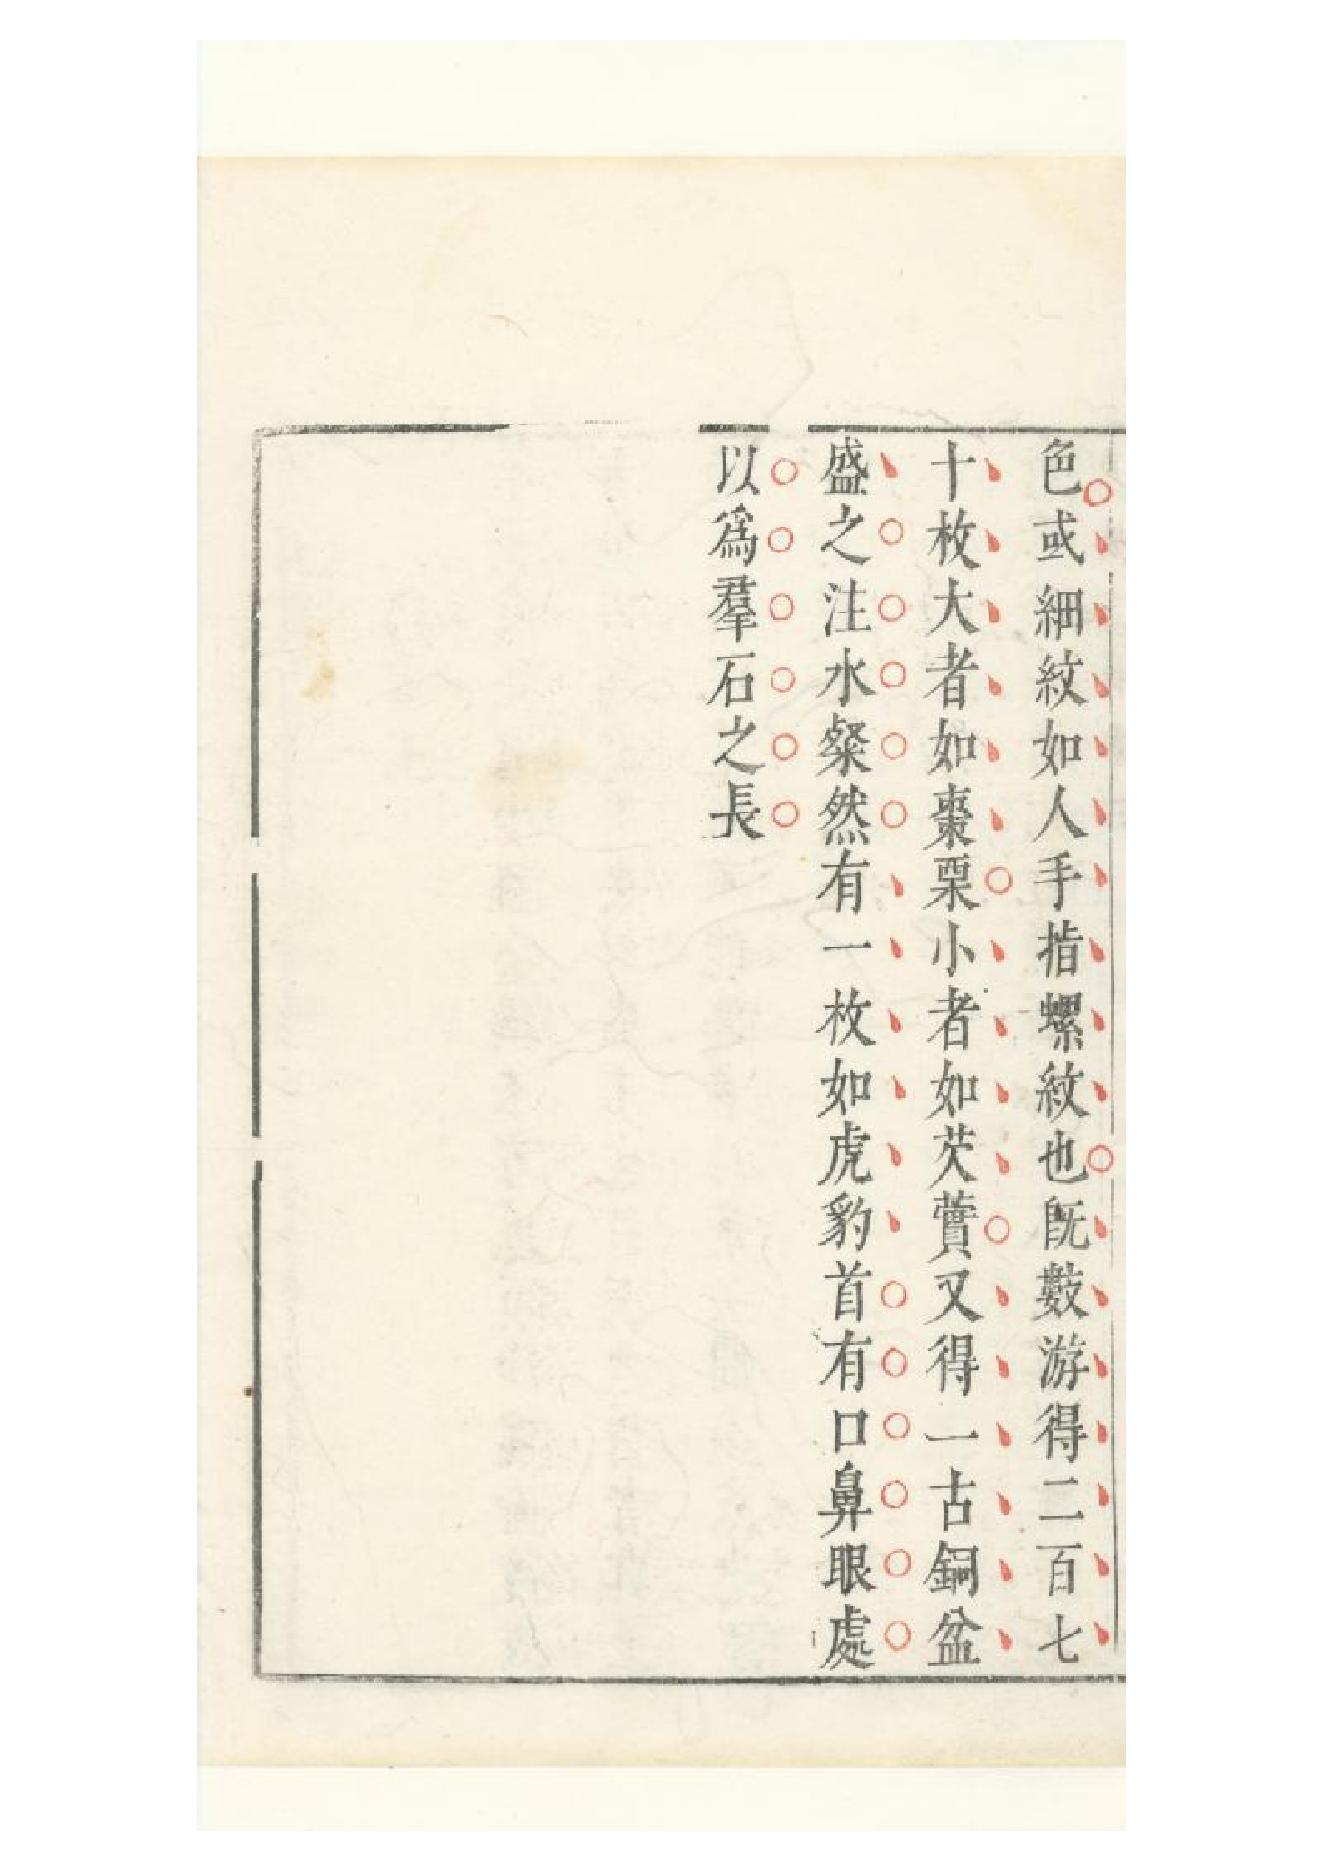 色或細紋如人手指螺紋也既數游得二百七
十枚大者如棗栗小者如芡實又得一古銅盆
盛之注水粲然有一枚如虎豹首有口鼻眼處
以為羣石之長